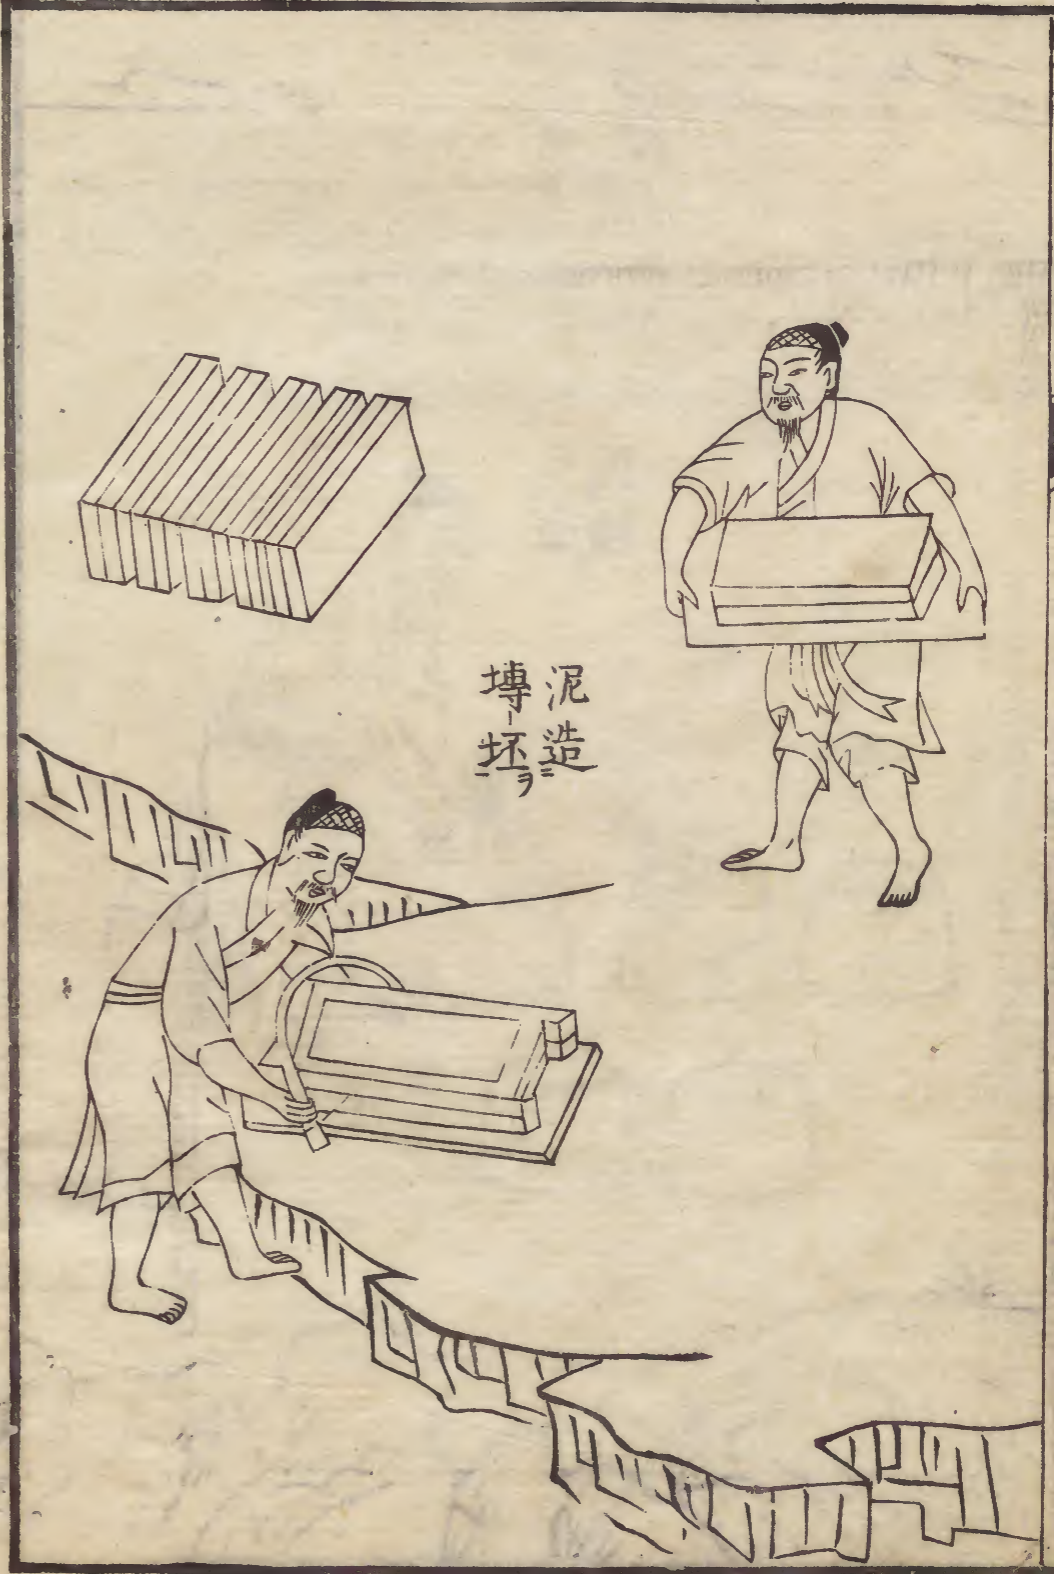 泥造
塼坯ヲ